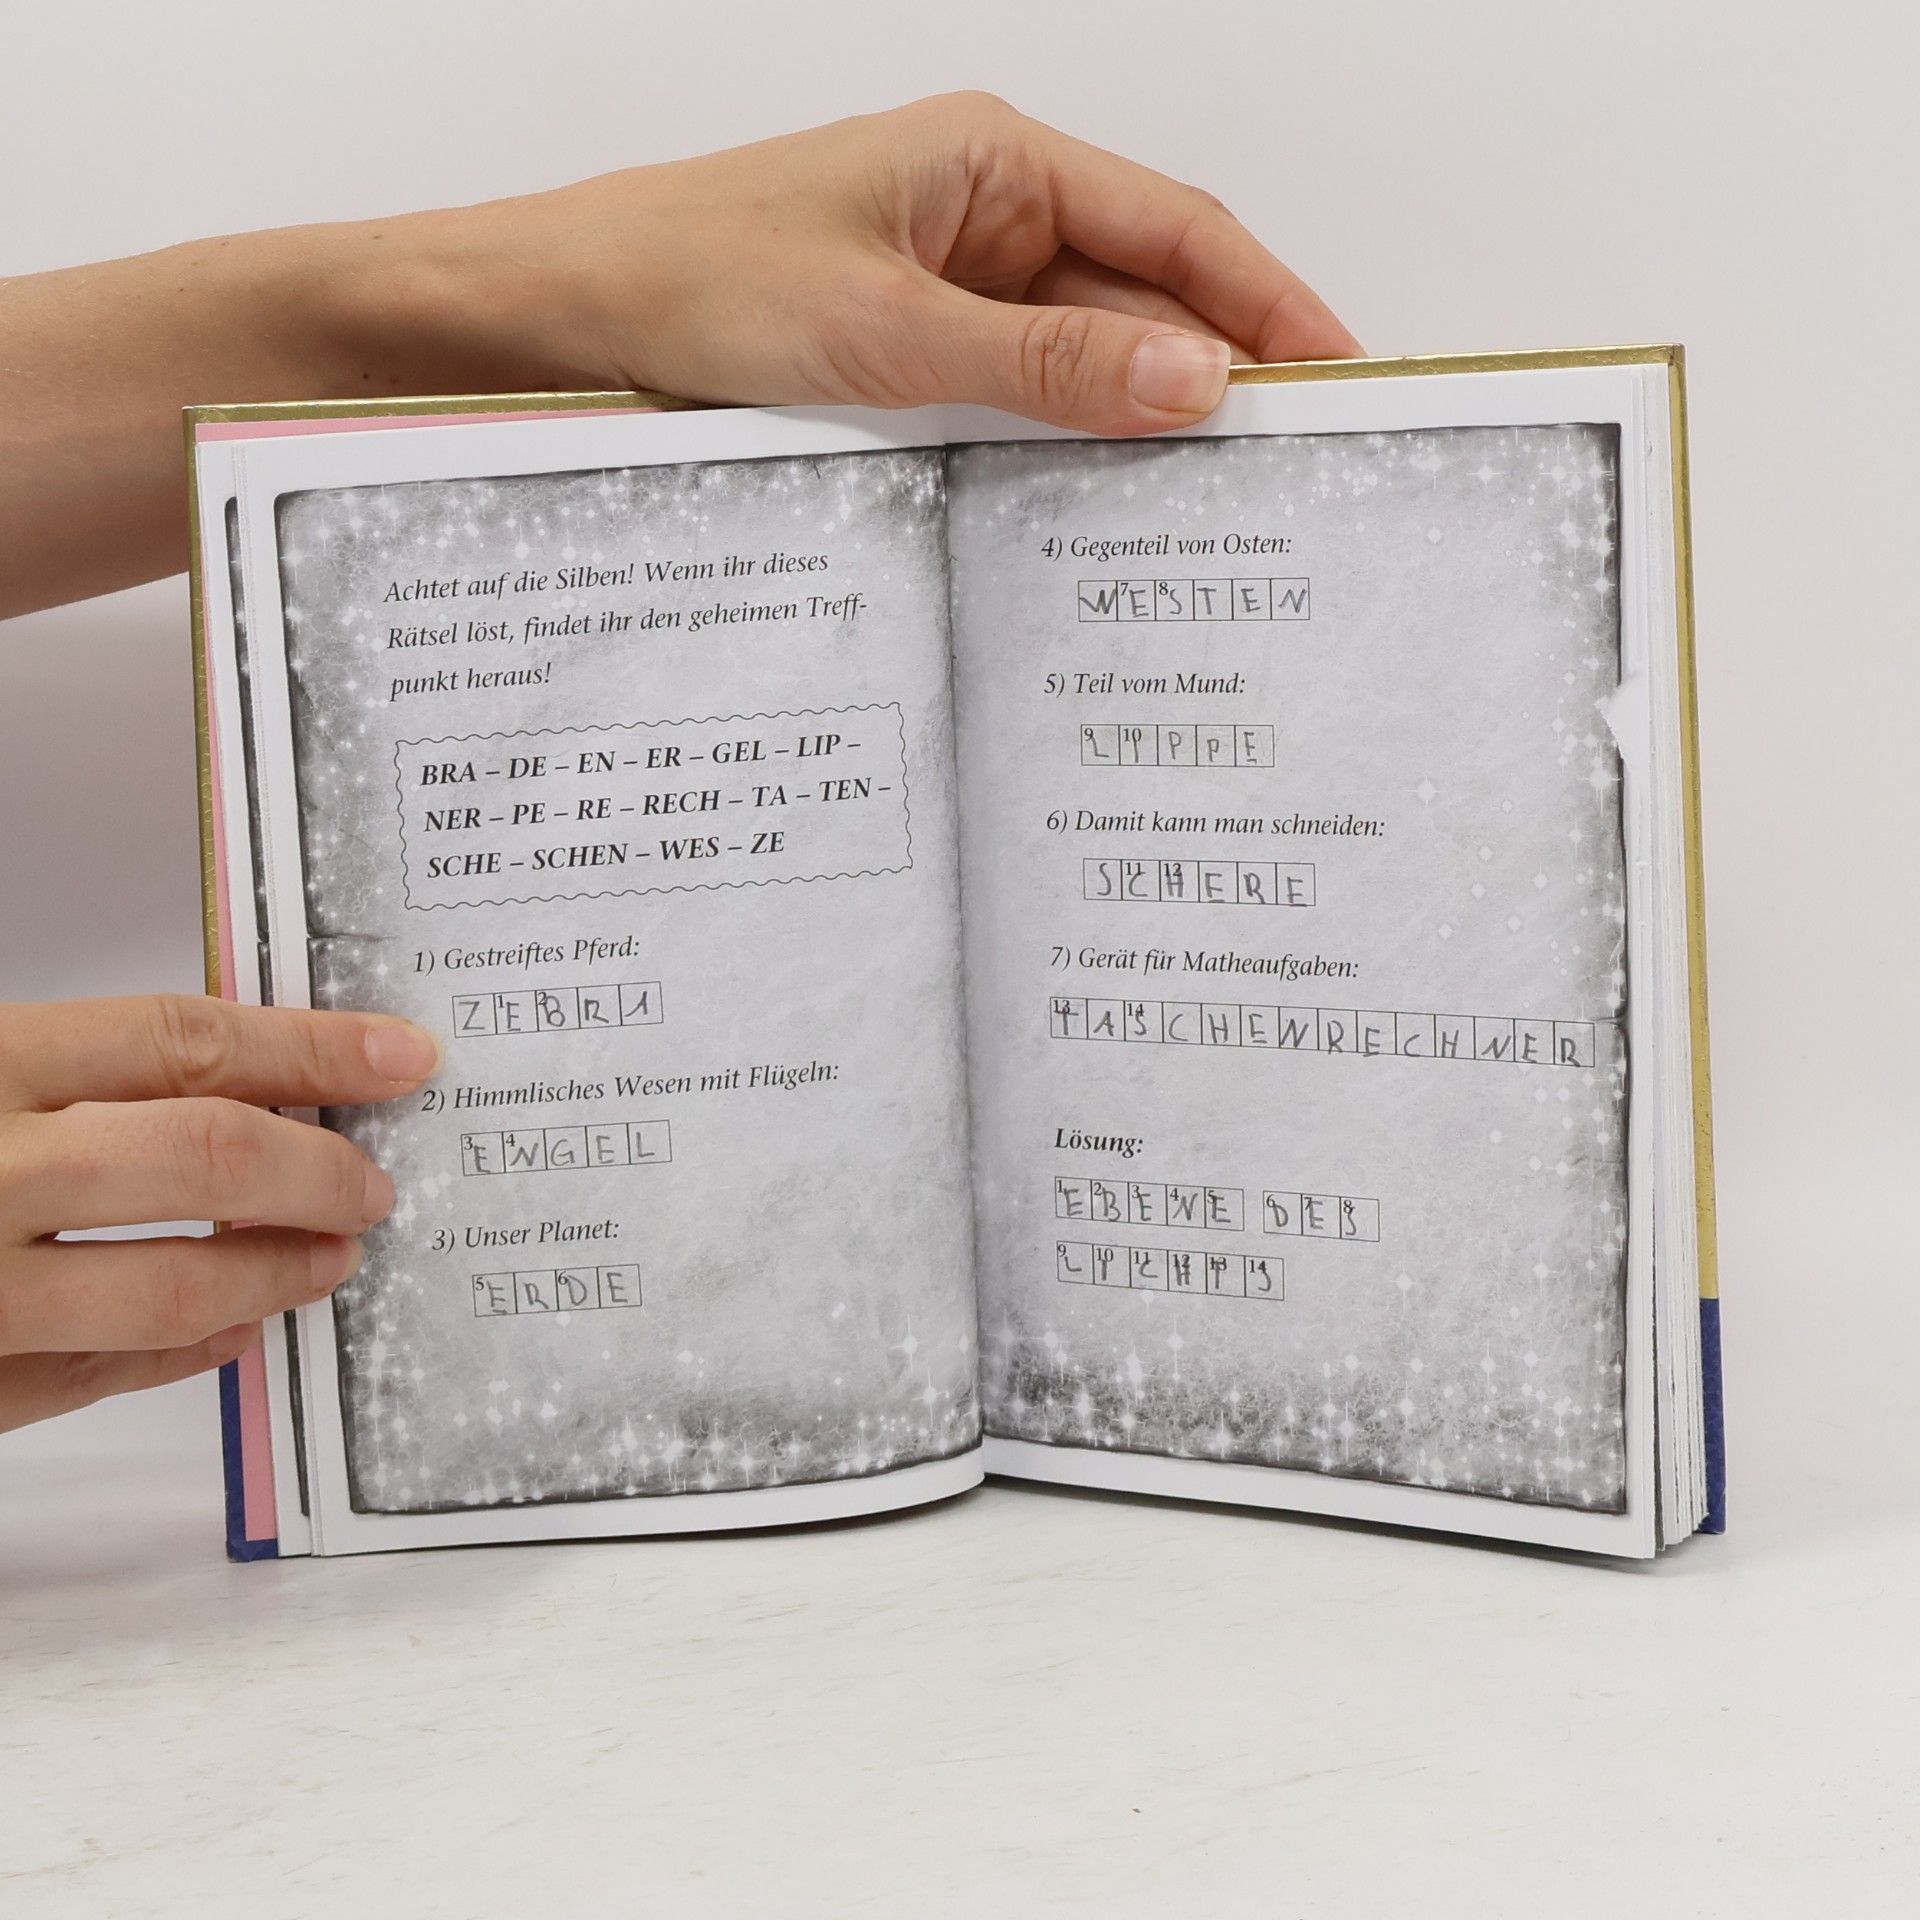 Achtet auf die Silben! Wenn ihr dieses
Rätsel löst, findet ihr den geheimen Treff-
punkt heraus!
BRA – DE – EN – ER – GEL – LIP –
NER – PE – RE – RECH – TA – TEN –
SCHE – SCHEN – WES – ZE
1) Gestreiftes Pferd:
ZEBRA
2) Himmlisches Wesen mit Flügeln:
ENGEL
3) Unser Planet:
ERDE
4) Gegenteil von Osten:
WESTEN
5) Teil vom Mund:
LIPPE
6) Damit kann man schneiden:
SCHERE
7) Gerät für Matheaufgaben:
TASCHENRECHNER
Lösung:
EBENE DES
LICHTS